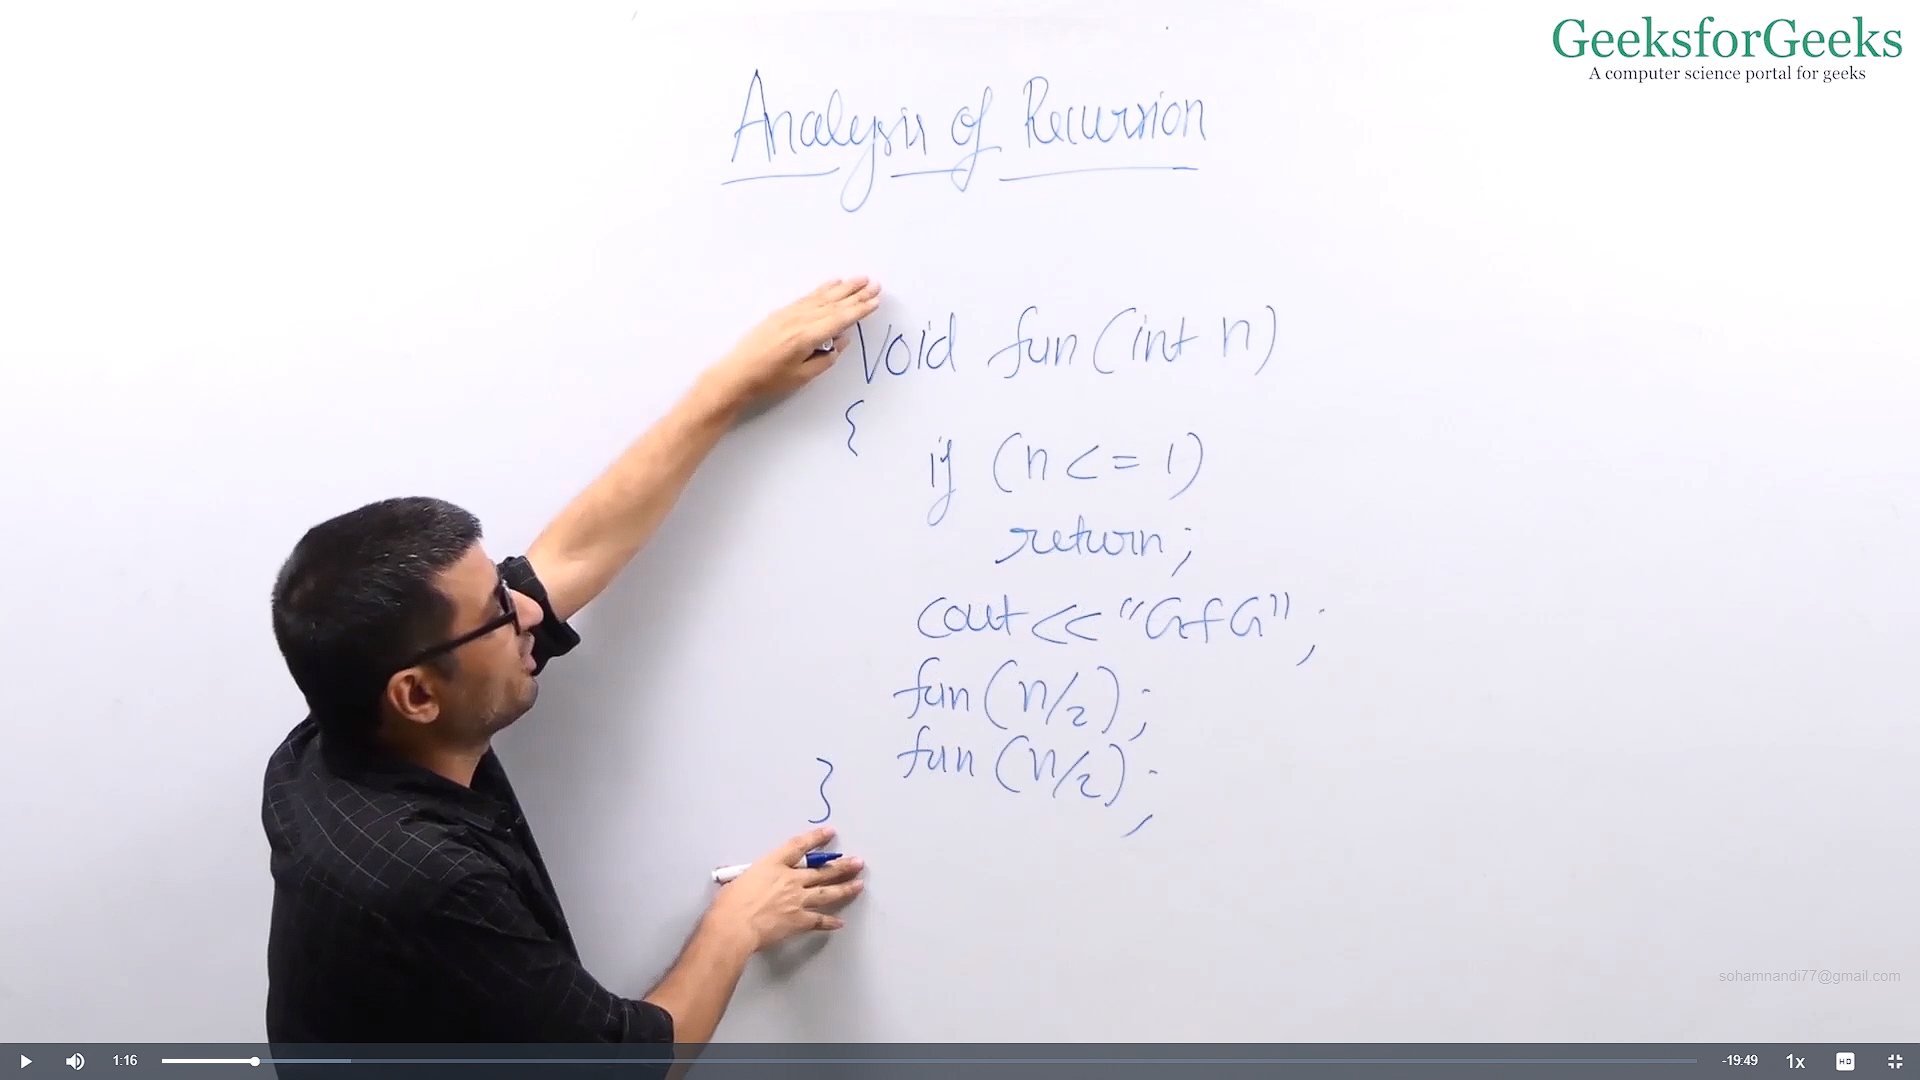 GeeksforGeeks
A computer science portal for geeks
Analysis of Recursion
Void fun (int n)
{
if (n <= 1)
return;
cout << "GfG";
fun (n/2);
fun (n/2);
}
sohamnandi77@gmail.com
1:16
-19:49
1x
HD